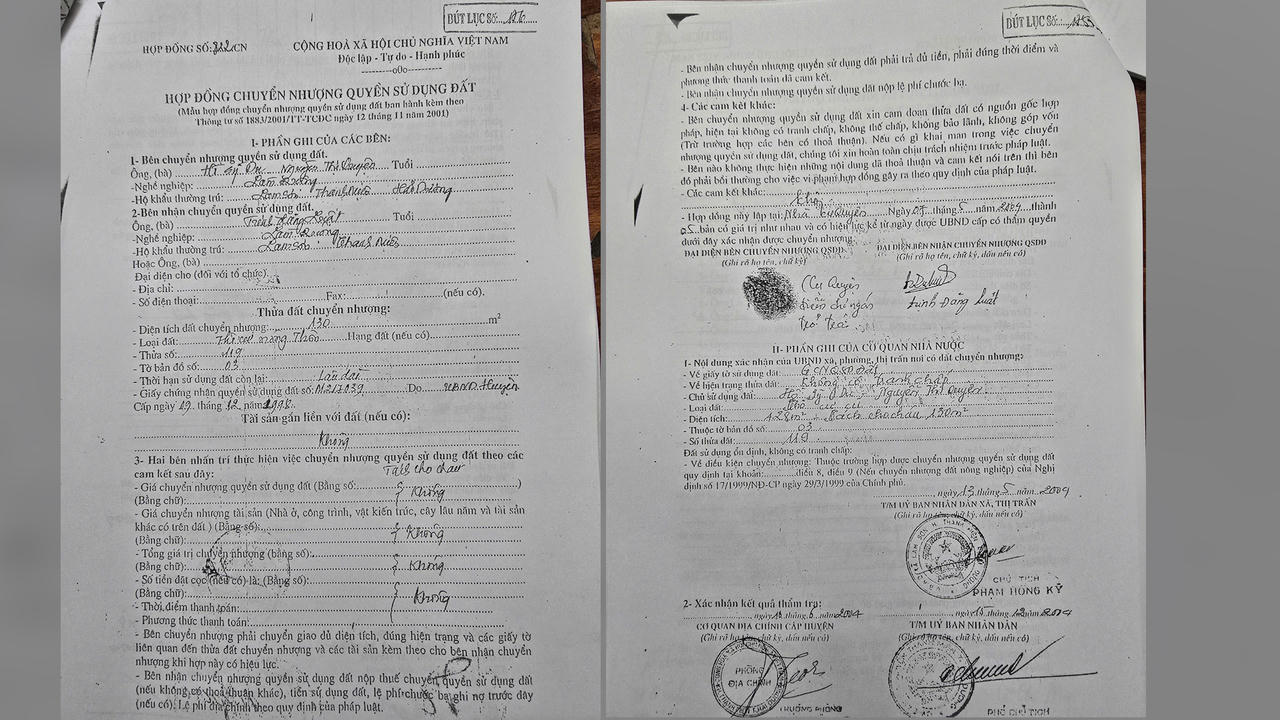 BÚT LỤC SỐ:
HỢP ĐỒNG SỐ: CN
CỘNG HOÀ XÃ HỘI CHỦ NGHĨA VIỆT NAM
Độc lập - Tự do - Hạnh phúc
--------o0o--------
HỢP ĐỒNG CHUYỂN NHƯỢNG QUYỀN SỬ DỤNG ĐẤT
(Mẫu hợp đồng chuyển nhượng quyền sử dụng đất ban hành kèm theo
Thông tư số 1883/2001/TT-TCĐC ngày 12 tháng 11 năm 2001)
I- PHẦN GHI CỦA CÁC BÊN:
1- Bên chuyển nhượng quyền sử dụng đất.
Ông, (bà) Nguyễn Thị Quyện Tuổi
-Nghề nghiệp: Làm ruộng
-Hộ khẩu thường trú: Lam Sơn Thanh Miện Hải Dương
2-Bên nhận chuyển quyền sử dụng đất.
Ông, (bà) Trịnh Đăng Luật Tuổi
-Nghề nghiệp: Làm ruộng
-Hộ khẩu thường trú: Lam Sơn - Thanh Miện
Hoặc Ông, (bà)
Đại diện cho (đối với tổ chức)
- Địa chỉ:
- Số điện thoại: Fax: (nếu có).
Thửa đất chuyển nhượng:
- Diện tích đất chuyển nhượng: 130 m²
- Loại đất: Hạng đất (nếu có)
- Thửa số: 119
- Tờ bản đồ số: 03
- Thời hạn sử dụng đất còn lại: Lâu dài
- Giấy chứng nhận quyền sử dụng đất số: M217039 Do UBND Huyện
Cấp ngày 29 tháng 12 năm 1998
Tài sản gắn liền với đất (nếu có):
Không
3- Hai bên nhất trí thực hiện việc chuyển nhượng quyền sử dụng đất theo các
cam kết sau đây: cho cháu
- Giá chuyển nhượng quyền sử dụng đất (Bằng số: )
(Bằng chữ): Không
- Giá chuyển nhượng tài sản (Nhà ở, công trình, vật kiến trúc, cây lâu năm và tài sản
khác có trên đất ) (Bằng số):
(Bằng chữ): Không
- Tổng giá trị chuyển nhượng (bằng số):
(Bằng chữ): Không
- Số tiền đặt cọc (nếu có) là: (Bằng số):
(Bằng chữ): Không
- Thời điểm thanh toán:
- Phương thức thanh toán:
- Bên chuyển nhượng phải chuyển giao đủ diện tích, đúng hiện trạng và các giấy tờ
liên quan đến thửa đất chuyển nhượng và các tài sản kèm theo cho bên nhận chuyển
nhượng khi hợp này có hiệu lực.
- Bên chuyển nhượng quyền sử dụng đất nộp thuế chuyển quyền sử dụng đất
(nếu không có thoả thuận khác), tiền sử dụng đất, lệ phí trước bạ ghi nợ trước đây
(nếu có). Lệ phí địa chính theo quy định của pháp luật.
BÚT LỤC SỐ:
- Bên nhận chuyển nhượng quyền sử dụng đất phải trả đủ tiền, phải đúng thời điểm và
phương thức thanh toán đã cam kết.
- Bên nhận chuyển nhượng quyền sử dụng đất nộp lệ phí chước bạ.
4- Các cam kết khác:
- Bên chuyển nhượng quyền sử dụng đất xin cam đoan thửa đất có nguồn gốc hợp
pháp, hiện tại không có tranh chấp, không thế chấp, không bảo lãnh, không góp vốn
(Trừ trường hợp các bên có thoả thuận). Nếu có gì khai man trong việc chuyển
nhượng quyền sử dụng đất, chúng tôi xin hoàn toàn chịu trách nhiệm trước pháp luật.
- Bên nào không thực hiện những nội dung đã thoả thuận và cam kết nói trên thì bên
đó phải bồi thường cho việc vi phạm hợp đồng gây ra theo quy định của pháp luật.
- Các cam kết khác:
- Hợp đồng này lập tại: Nhà Quyện Ngày tháng 5 năm 2004 thành
05 bản có giá trị như nhau và có hiệu lực kể từ ngày được UBND cấp có thẩm quyền
dưới đây xác nhận được chuyển nhượng.
ĐẠI DIỆN BÊN CHUYỂN NHƯỢNG QSDĐ
(Ghi rõ họ tên, chữ ký)
ĐẠI DIỆN BÊN NHẬN CHUYỂN NHƯỢNG QSDĐ
(Ghi rõ họ tên, chữ ký, dấu nếu có)
Cụ Quyện
điểm chỉ ngón
trỏ trái
Trịnh Đăng Luật
II- PHẦN GHI CỦA CƠ QUAN NHÀ NƯỚC
1- Nội dung xác nhận của UBND xã, phường, thị trấn nơi có đất chuyển nhượng:
- Về giấy tờ sử dụng đất: GCNQSD đất
- Về hiện trạng thửa đất: Không có tranh chấp
- Chủ sử dụng đất: Nguyễn Thị Quyện
- Loại đất:
- Diện tích: cho cháu 130m²
- Thuộc tờ bản đồ số: 03
- Số thửa đất: 119
Đất sử dụng ổn định, không có tranh chấp:
- Về điều kiện chuyển nhượng: Thuộc trường hợp được chuyển nhượng quyền sử dụng đất
quy định tại khoản: điều 8, điều 9 (Nếu chuyển nhượng đất nông nghiệp) của Nghị
định số 17/1999/NĐ-CP ngày 29/3/1999 của Chính phủ.
, ngày 13 tháng 5 năm 2004
T/M UỶ BAN NHÂN DÂN XÃ, THỊ TRẤN
(Ghi rõ họ tên, chữ ký, dấu nếu có)
CHỦ TỊCH
PHẠM HỒNG KỲ
2- Xác nhận kết quả thẩm tra:
CƠ QUAN ĐỊA CHÍNH CẤP HUYỆN
(Ghi rõ họ tên, chữ ký, dấu nếu có)
PHÒNG
ĐỊA CHÍNH
TRƯỞNG PHÒNG
T/M UỶ BAN NHÂN DÂN
(Ghi rõ họ tên, chữ ký, dấu nếu có)
PHÓ CHỦ TỊCH